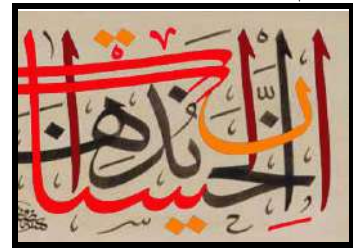 إن الحسنات يذهبن